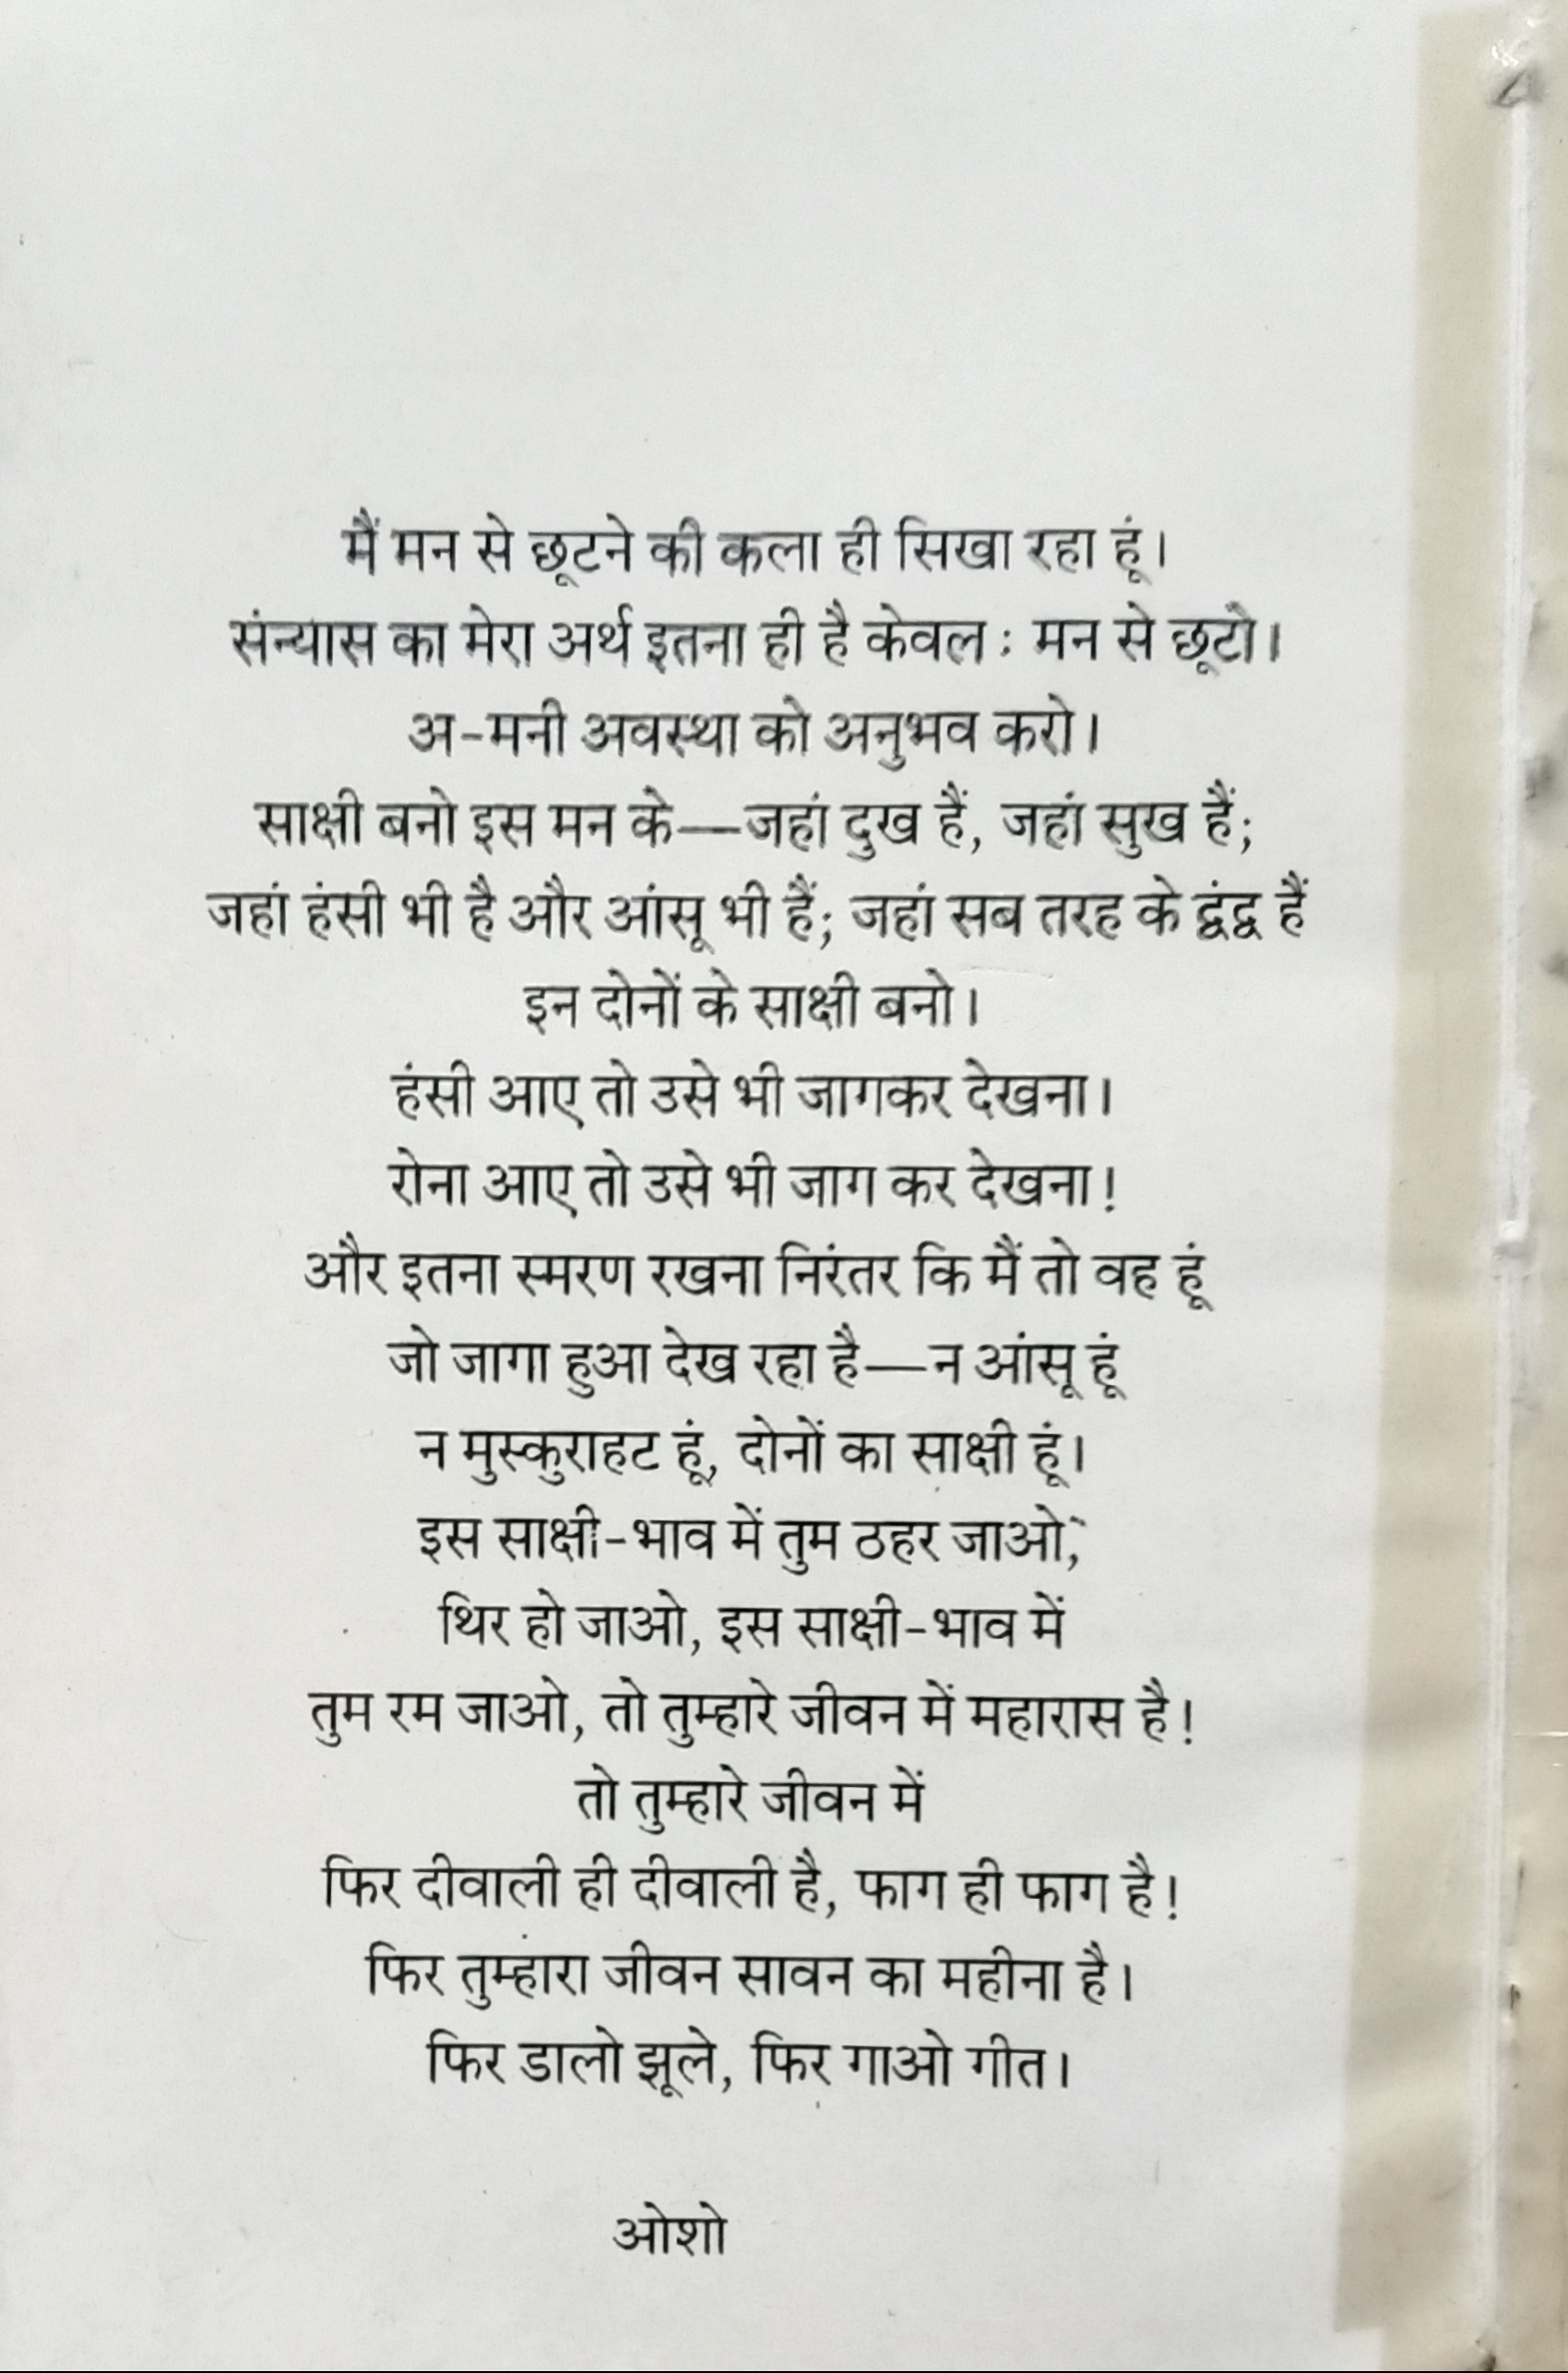 मैं मन से छूटने की कला ही सिखा रहा हूं।
संन्यास का मेरा अर्थ इतना ही है केवल : मन से छूटो।
अ-मनी अवस्था को अनुभव करो।
साक्षी बनो इस मन के—जहां दुख हैं, जहां सुख हैं;
जहां हंसी भी है और आंसू भी हैं; जहां सब तरह के द्वंद्व हैं
इन दोनों के साक्षी बनो।
हंसी आए तो उसे भी जागकर देखना।
रोना आए तो उसे भी जाग कर देखना!
और इतना स्मरण रखना निरंतर कि मैं तो वह हूं
जो जागा हुआ देख रहा है—न आंसू हूं
न मुस्कुराहट हूं, दोनों का साक्षी हूं।
इस साक्षी-भाव में तुम ठहर जाओ,
थिर हो जाओ, इस साक्षी-भाव में
तुम रम जाओ, तो तुम्हारे जीवन में महारास है!
तो तुम्हारे जीवन में
फिर दीवाली ही दीवाली है, फाग ही फाग है!
फिर तुम्हारा जीवन सावन का महीना है।
फिर डालो झूले, फिर गाओ गीत।
ओशो